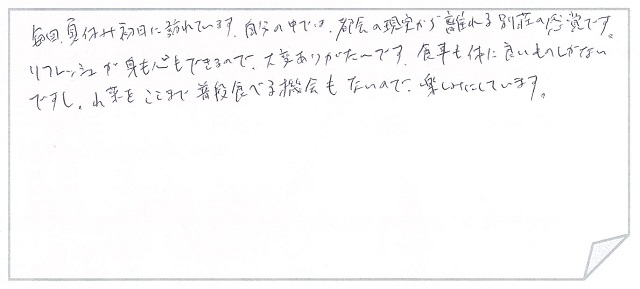 毎回、夏休み初日に訪れています。自分の中では、都会の現実から離れる別荘の感覚です。
リフレッシュが身も心もできるので、大変ありがたいです。食事も体に良いものしかない
ですし、お菜をここまで普段食べる機会もないので、楽しみにしています。